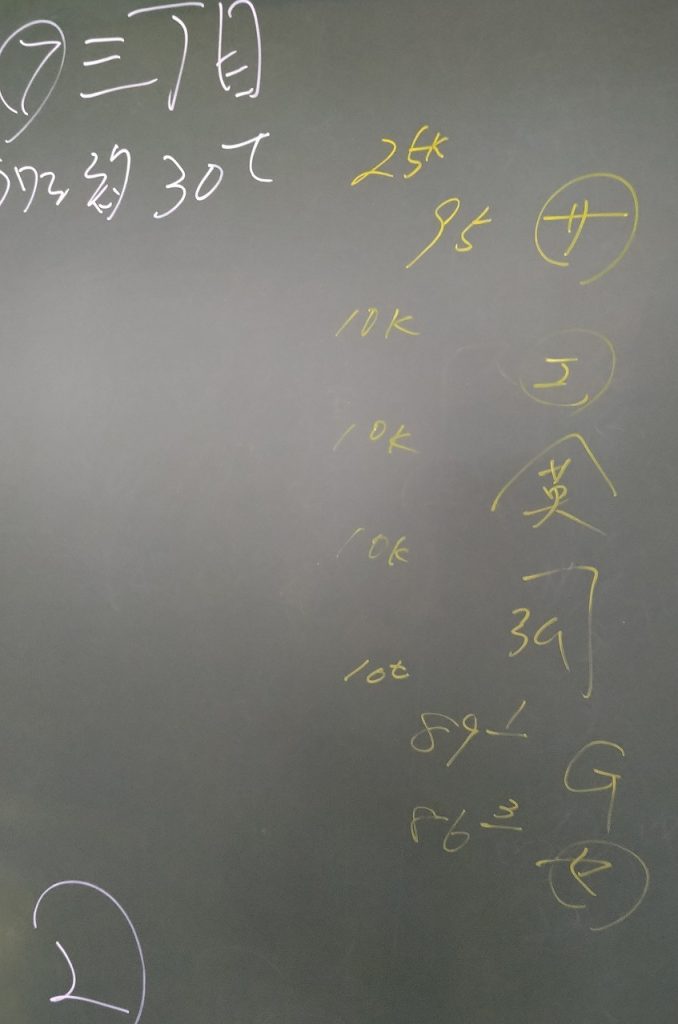 ⑦三丁目
約30t
25K
95 サ
10K
エ
10K
英
10K
3G
10t
89 1
G
86 3
セ